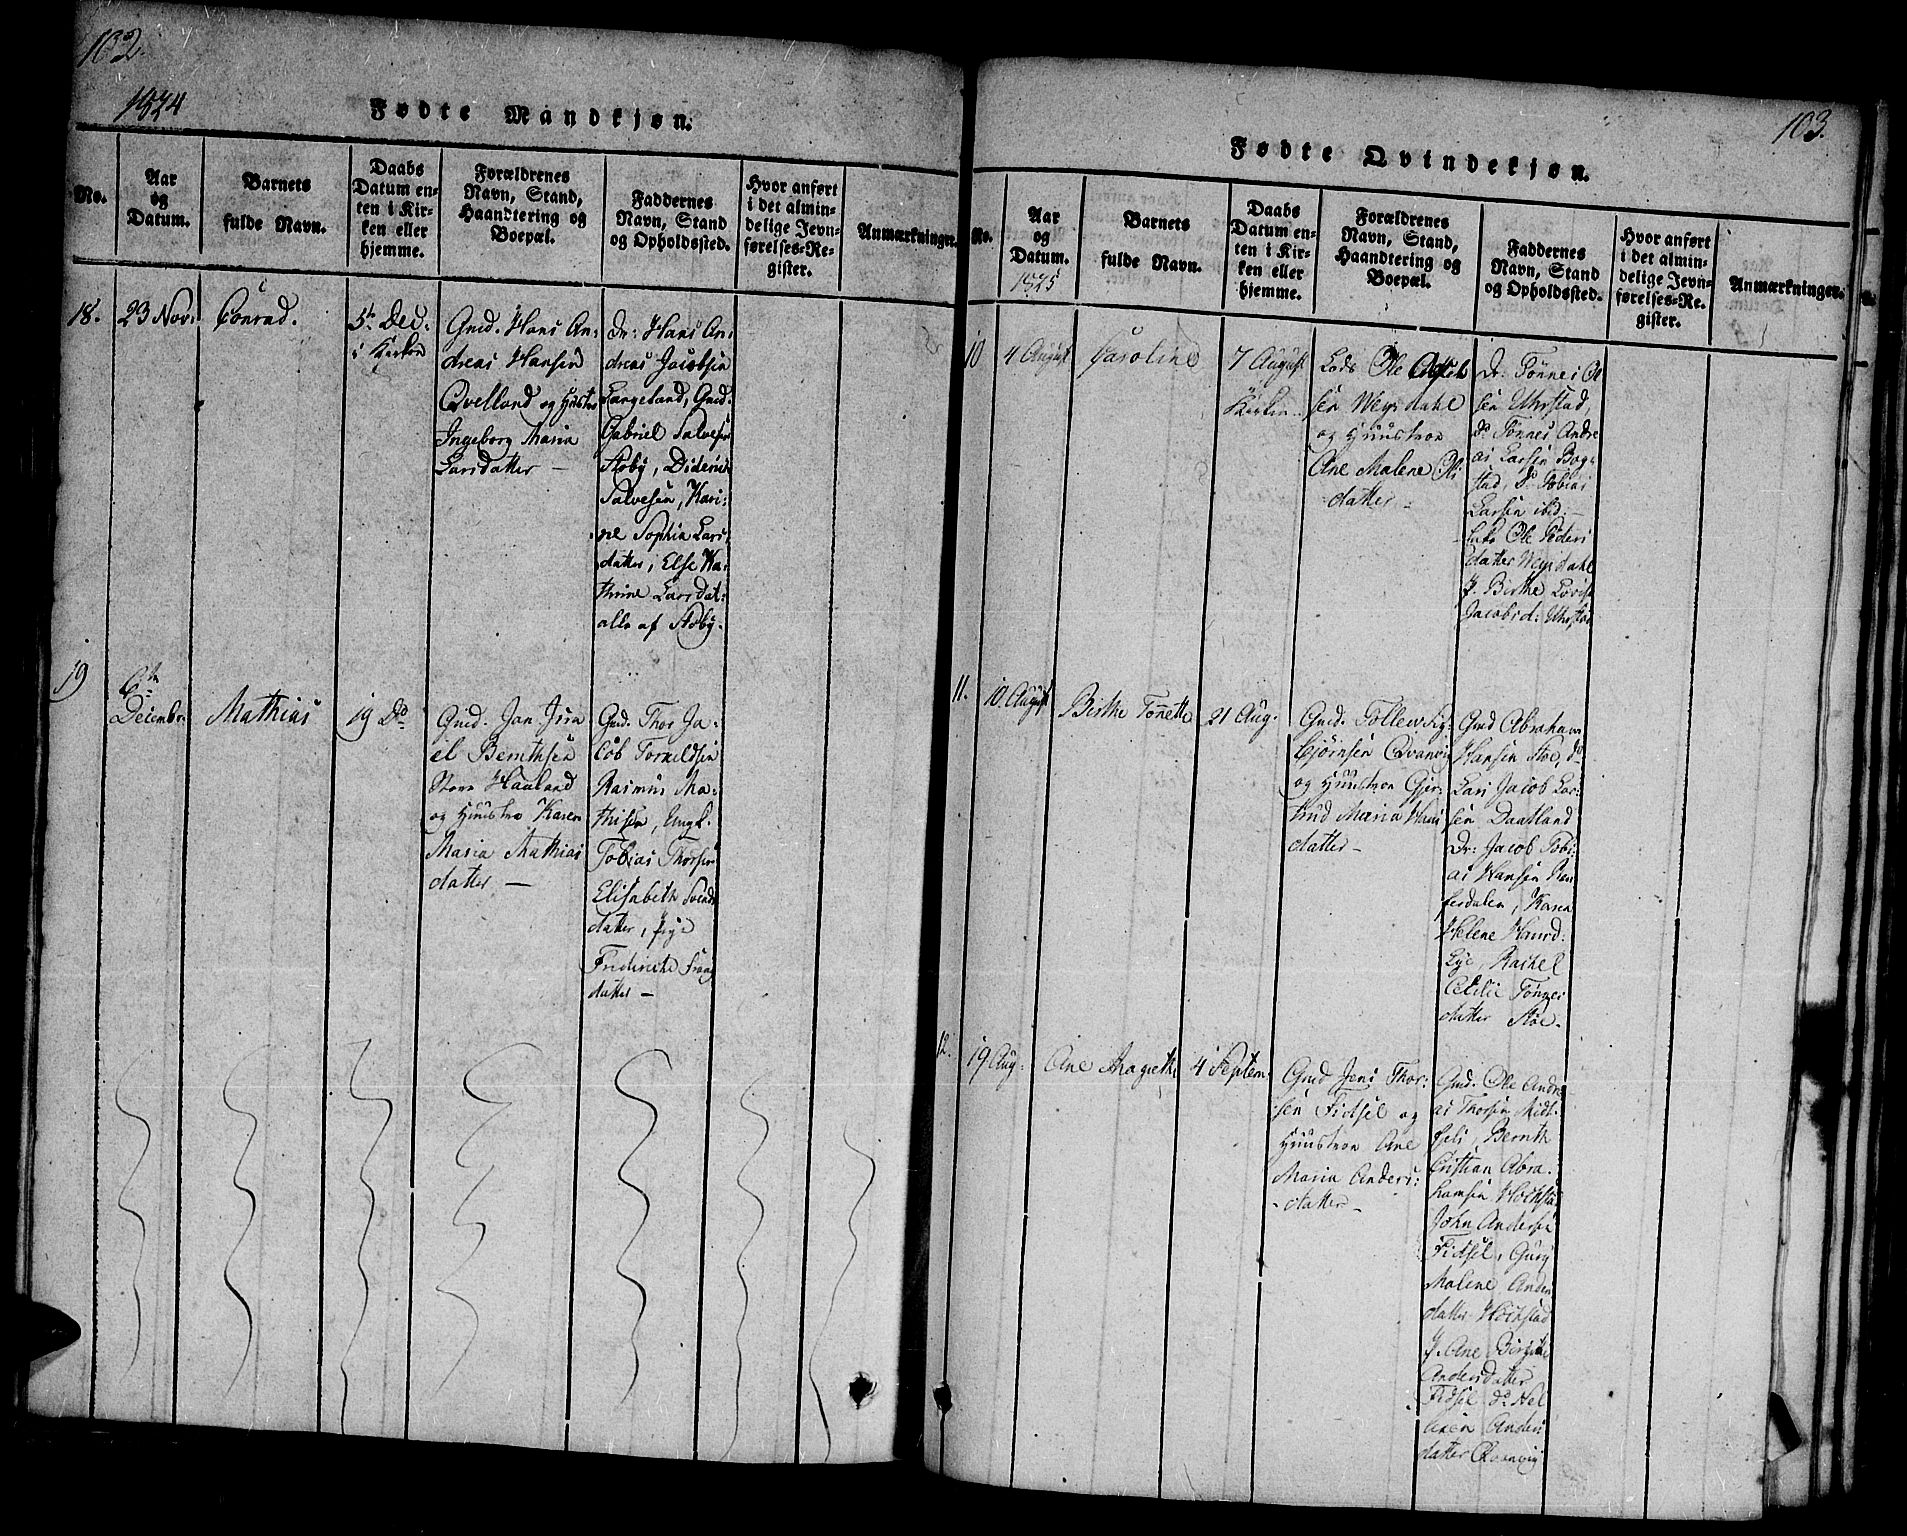 102.
1824
Fødte Mandkjøn.
No.
Aar
og
Datum.
Barnets
fulde Navn.
Daabs
Datum en-
ten i Kir-
ken eller
hjemme.
Forældrenes
Navn, Stand,
Haandtering og
Boepæl.
Faddernes
Navn, Stand
og Opholdssted.
Hvor anført
i det almin-
delige Jevn-
førelses-Re-
gister.
Anmærkninger.
18.
23 Nov:
Conrad.
5te Dec:
i Kirken
Gmd. Hans An:
dreas Hansen
Qvelland og Hustro
Ingeborg Maria
Larsdatter —
Dr: Hans An:
dreas Jacobsen
Langeland, Gmd.
Gabriel Salvesen
Stoby, Diderick
Salvesen, Kari:
ne Sophia Lars
datter, Else Ka:
thrine Larsdat:
alle af Stoby.
19
6te
Decembr:
Mathias
19 Do
Gmd. Jan Isra
el Bernthsen
Store Haaland
og Huustro Karen
Maria Mathias
datter —
Gmd. Thor Ja:
cob Torkildsen
Rasmus Ma:
thisen, Ungk.
Tobias Thorsen
Elisabeth Svends
datter, pige
Fredericke Frans
datter —
103.
Fødte Qvindekjøn.
No.
Aar
og
Datum.
1825
Barnets
fulde Navn.
Daabs
Datum en-
ten i Kir-
ken eller
hjemme.
Forældrenes
Navn, Stand,
Haandtering og
Boepæl.
Faddernes
Navn, Stand
og Opholdssted.
Hvor anført
i det almin-
delige Jevn-
førelses-Re-
gister.
Anmærkninger.
10
4 August
Caroline
7 August
Kirken
Lods Ole
sen Weysdahl
og Huustroe
Ane Malene Ols
datter —
Dr: Tønnes Ol
sen Uhrstad,
Do Tønnes Andre
as Larsen Bog:
stad, Do Tobias
Larsen ibid: —
Ole Peders
datter Weysdahl
P. Birthe Lovise
Jacobsd: Uhrstad
11.
10 August
Birthe Tonette
21 Aug.
Gmd. Tollew Sig:
bjørnsen Qvanvig
og Huustroe Gjer
trud Maria Hans
datter —
Gmd Abraham
Hansen Stoe, do
Lars Jacob Lar:
sen Daatland
Dr: Jacob Tobi:
as Hansen
Karen
Helene Haurd:
Eye, Rachel
Cecilie Tønnes
datter Stoe.
12.
19 Aug:
Ane Magrethe
4 Septem:
Gmd Jens Thor:
sen Fidsel og
Huustroe Ane
Maria Anders:
datter —
Gmd. Ole Andre
as Thorsen Midt
fieli, Bernth
Cristian Abra:
hamsen Hochstad
John Andersen
Fidsel, Gury
Malene Anders
datter Hochstad
P. Ane Birgitte
Andersdatter
Fidsel do Hel
Anders
datter Qvanvig